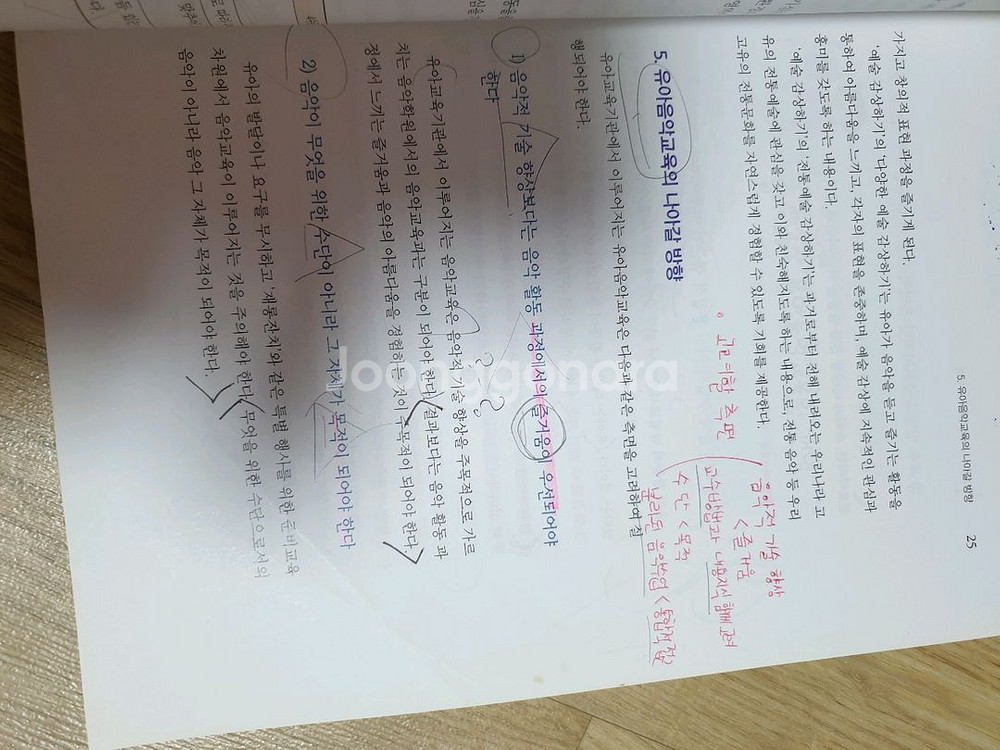 5. 유아음악교육의 나아갈 방향
25
가지고 창의적 표현 과정을 즐기게 된다.
'예술 감상하기'의 '다양한 예술 감상하기'는 유아가 음악을 듣고 즐기는 활동을
통하여 아름다움을 느끼고, 각자의 표현을 존중하며, 예술 감상에 지속적인 관심과
흥미를 갖도록 하는 내용이다.
'예술 감상하기'의 '전통예술 감상하기'는 과거로부터 전해 내려오는 우리나라 고
유의 전통예술에 관심을 갖고 이와 친숙해지도록 하는 내용으로, 전통 음악 등 우리
고유의 전통문화를 자연스럽게 경험할 수 있도록 기회를 제공한다.
음악적 기술 향상
< 즐거움
고려할 측면
교수방법과 내용지식 함께 고려
수단 < 목적
분리된 음악수업 < 통합적 접
5. 유아음악교육의 나아갈 방향
유아교육기관에서 이루어지는 유아음악교육은 다음과 같은 측면을 고려하여 진
행되어야 한다.
1) 음악적 기술 향상보다는 음악 활동 과정에서의 즐거움이 우선되어야
한다
유아교육기관에서 이루어지는 음악교육은 음악적 기술 향상을 주목적으로 가르
치는 음악학원에서의 음악교육과는 구분이 되어야 한다. 결과보다는 음악 활동 과
정에서 느끼는 즐거움과 음악의 아름다움을 경험하는 것이 주목적이 되어야 한다.
2) 음악이 무엇을 위한 수단이 아니라 그 자체가 목적이 되어야 한다
유아의 발달이나 요구를 무시하고 '재롱잔치'와 같은 특별 행사를 위한 준비교육
차원에서 음악교육이 이루어지는 것을 주의해야 한다. 무엇을 위한 수단으로서의
음악이 아니라 음악 그 자체가 목적이 되어야 한다.
Joonggonara